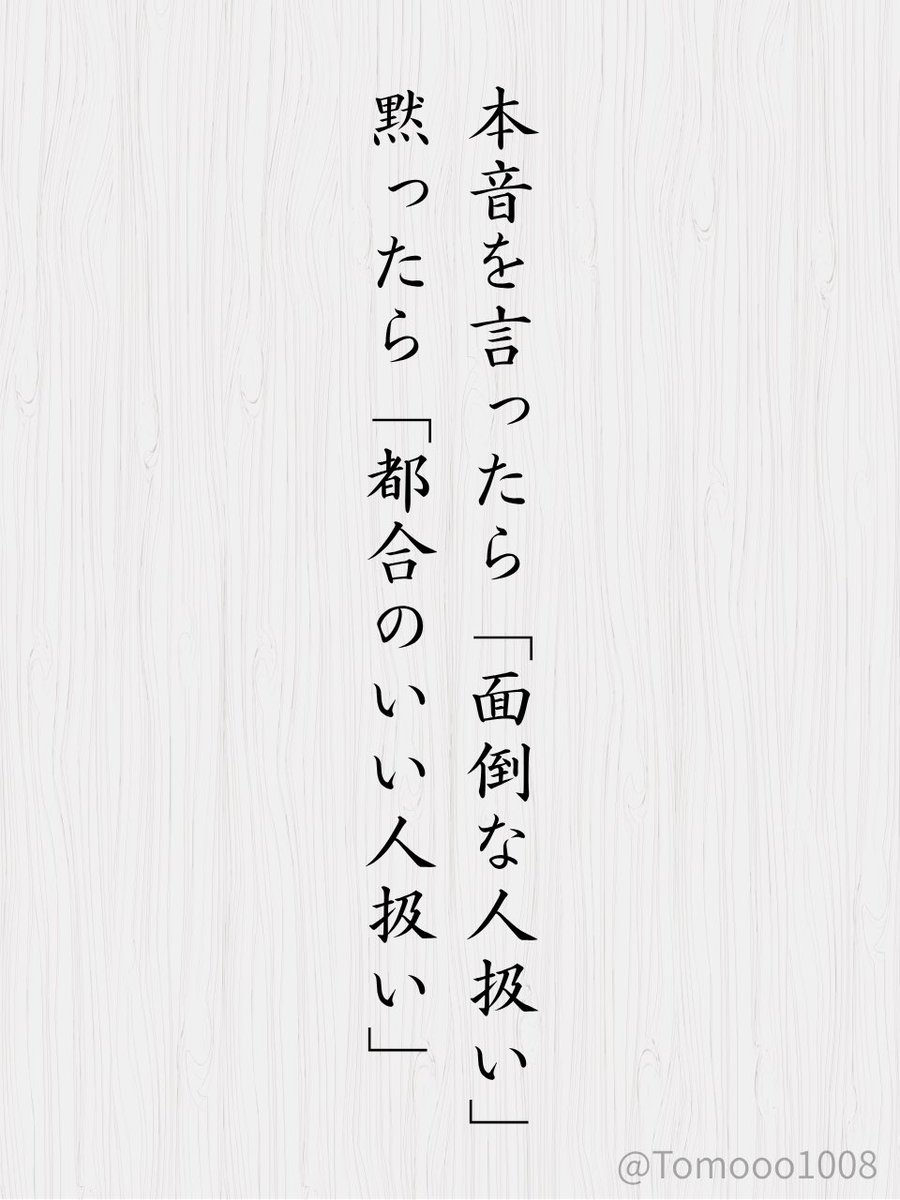 本音を言ったら「面倒な人扱い」
黙ったら「都合のいい人扱い」
@Tomooo1008